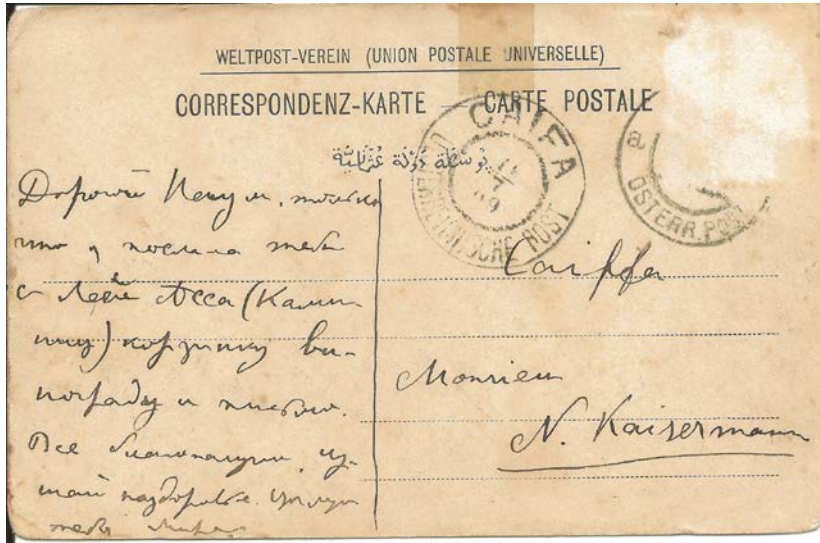 WELTPOST-VEREIN (UNION POSTALE UNIVERSELLE)
CORRESPONDENZ-KARTE — CARTE POSTALE
CAIFA
11
7
09
OESTERREICHISCHE POST
a
ÖSTERR. POST
Дорогой только
что я послала тебе
с Асса (Калми-
) корзинку ви-
нограду и письмо.
Все благополучно. Ку-
шай на здоровье. Целую
тебя
Caiffa
Monsieur
N. Kaisermann